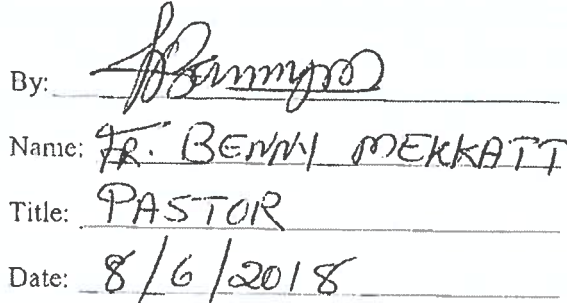 By:
Name: FR. BENNY MEKKATT
Title: PASTOR
Date: 8/6/2018